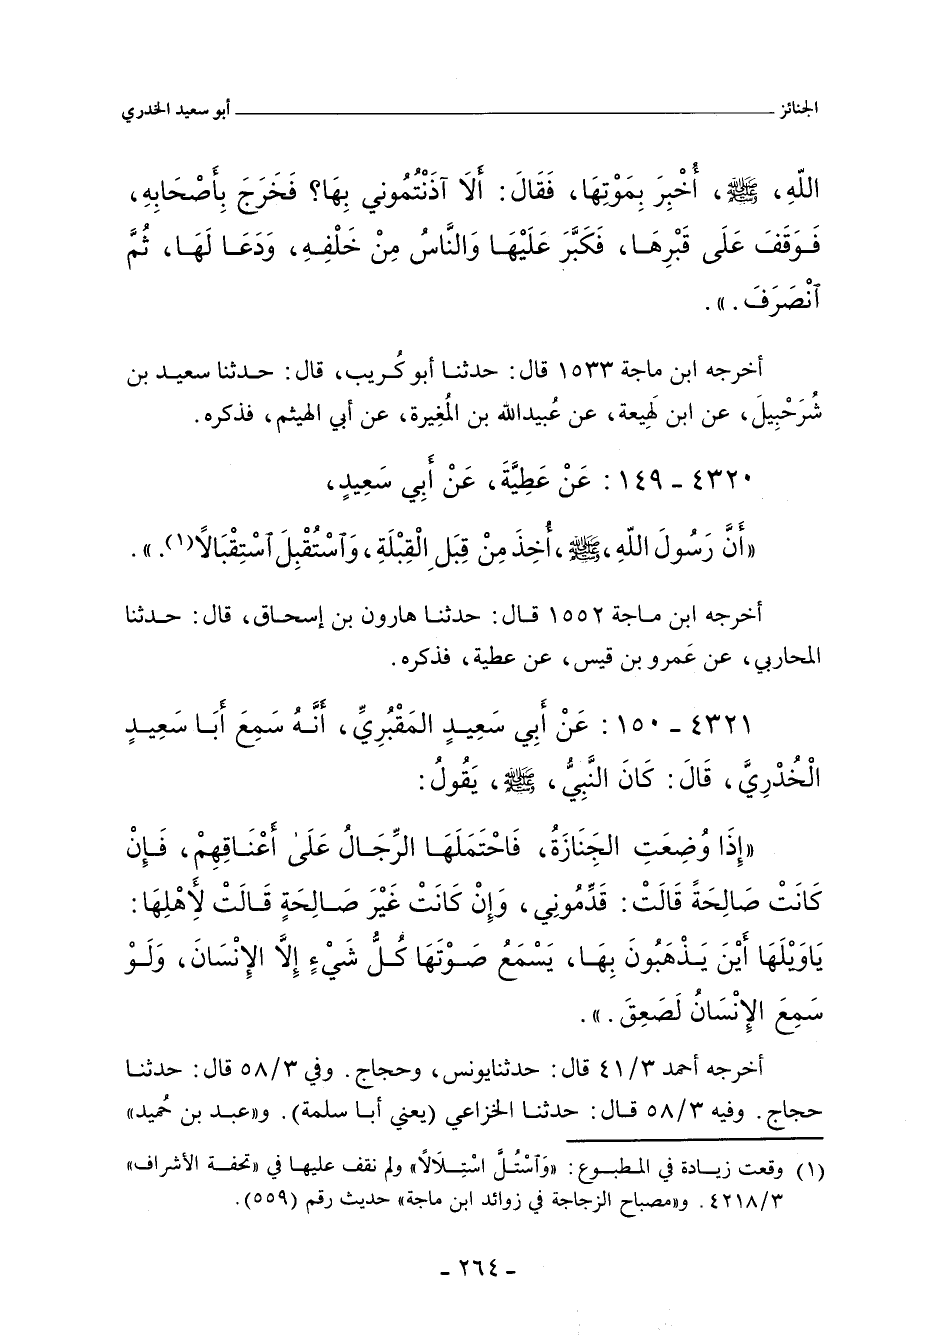 الجنائز ــــــــــ أبو سعيد الخدري
اللّهِ، ﷺ، أُخْبِرَ بِمَوْتِهَا، فَقَالَ: أَلَا آذَنْتُمُونِي بِهَا؟ فَخَرَجَ بِأَصْحَابِهِ،
فَوَقَفَ عَلَى قَبْرِهَا، فَكَبَّرَ عَلَيْهَا وَالنَّاسُ مِنْ خَلْفِهِ، وَدَعَا لَهَا، ثُمَّ
ٱنْصَرَفَ.».
أخرجه ابن ماجة ١٥٣٣ قال: حدثنا أبو كُريب، قال: حدثنا سعيد بن
شُرَحْبِيلَ، عن ابن لَهِيعة، عن عُبيدالله بن المُغِيرة، عن أبي الهيثم، فذكره.
٤٣٢٠ - ١٤٩: عَنْ عَطِيَّةَ، عَنْ أَبِي سَعِيدٍ،
«أَنَّ رَسُولَ اللّهِ، ﷺ، أُخِذَ مِنْ قِبَلِ الْقِبْلَةِ، وَٱسْتُقْبِلَ ٱسْتِقْبَالًا(١).».
أخرجه ابن ماجة ١٥٥٢ قال: حدثنا هارون بن إسحاق، قال: حدثنا
المحاربي، عن عَمرو بن قيس، عن عطية، فذكره.
٤٣٢١ - ١٥٠: عَنْ أَبِي سَعِيدٍ المَقْبُرِيِّ، أَنَّهُ سَمِعَ أَبَا سَعِيدٍ
الْخُدْرِيَّ، قَالَ: كَانَ النَّبِيُّ، ﷺ، يَقُولُ:
«إِذَا وُضِعَتِ الجَنَازَةُ، فَاحْتَمَلَهَا الرِّجَالُ عَلَىٰ أَعْنَاقِهِمْ، فَإِنْ
كَانَتْ صَالِحَةً قَالَتْ: قَدِّمُونِي، وَإِنْ كَانَتْ غَيْرَ صَالِحَةٍ قَالَتْ لِأَهْلِهَا:
يَاوَيْلَهَا أَيْنَ يَذْهَبُونَ بِهَا، يَسْمَعُ صَوْتَهَا كُلُّ شَيْءٍ إِلَّا الإِنْسَانَ، وَلَوْ
سَمِعَ الإِنْسَانُ لَصَعِقَ.».
أخرجه أحمد ٤١/٣ قال: حدثنايونس، وحجاج. وفي ٥٨/٣ قال: حدثنا
حجاج. وفيه ٥٨/٣ قال: حدثنا الخزاعي (يعني أبا سلمة). و«عبد بن حُميد»
(١) وقعت زيادة في المطبوع: «وَٱسْتُلَّ اسْتِلَالًا» ولم نقف عليها في «تحفة الأشراف»
٤٢١٨/٣. و«مصباح الزجاجة في زوائد ابن ماجة» حديث رقم (٥٥٩).
- ٢٦٤ -